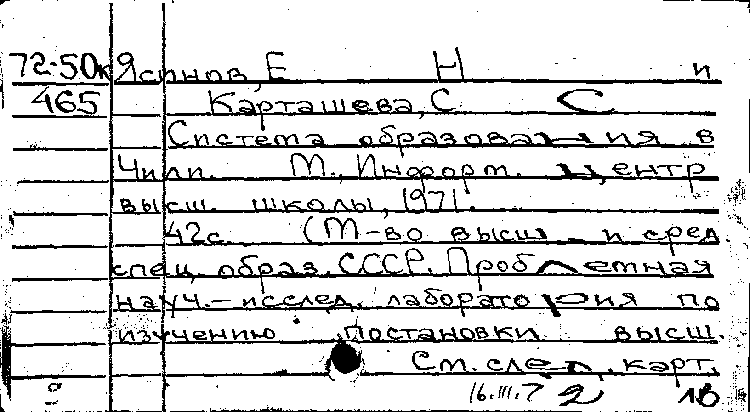 72-50к Ясинов, Е Н и
465 Карташева, С С
Система образования в
Чили. М., Информ. центр
высш. школы, 1971.
42с. (М-во высш и сред
спец. образ. СССР. Проблемная
науч.-исслед. лаборатория по
изучению постановки высш.
См. след. карт.
16.III.72 1в